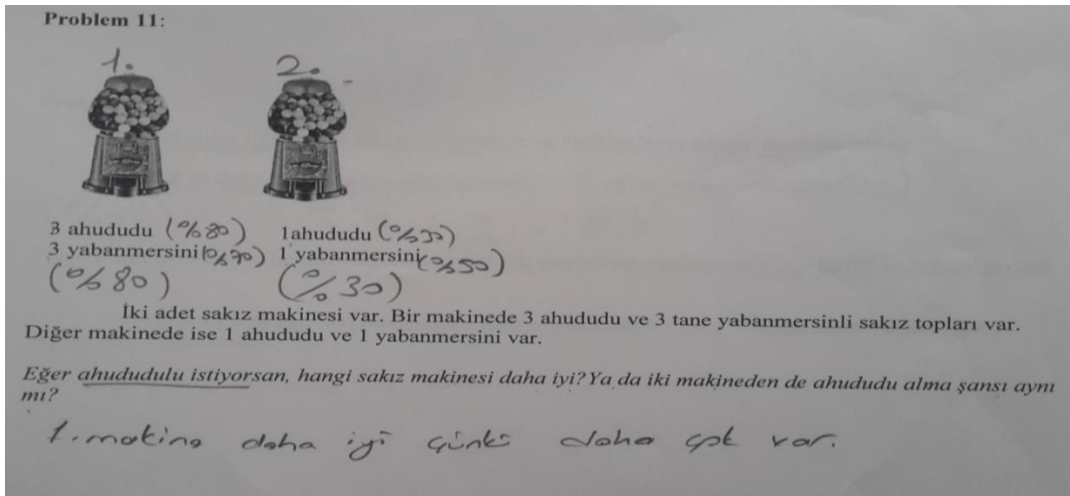 Problem 11:
1. 2.
3 ahududu (%80) 1ahududu (%30)
3 yabanmersini (%70) 1 yabanmersini (%50)
(%80) (%30)
İki adet sakız makinesi var. Bir makinede 3 ahududu ve 3 tane yabanmersinli sakız topları var.
Diğer makinede ise 1 ahududu ve 1 yabanmersini var.
Eğer ahududulu istiyorsan, hangi sakız makinesi daha iyi? Ya da iki makineden de ahududu alma şansı aynı
mı?
1. makina daha iyi çünkü daha çok var.